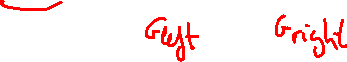 Gleft Gright